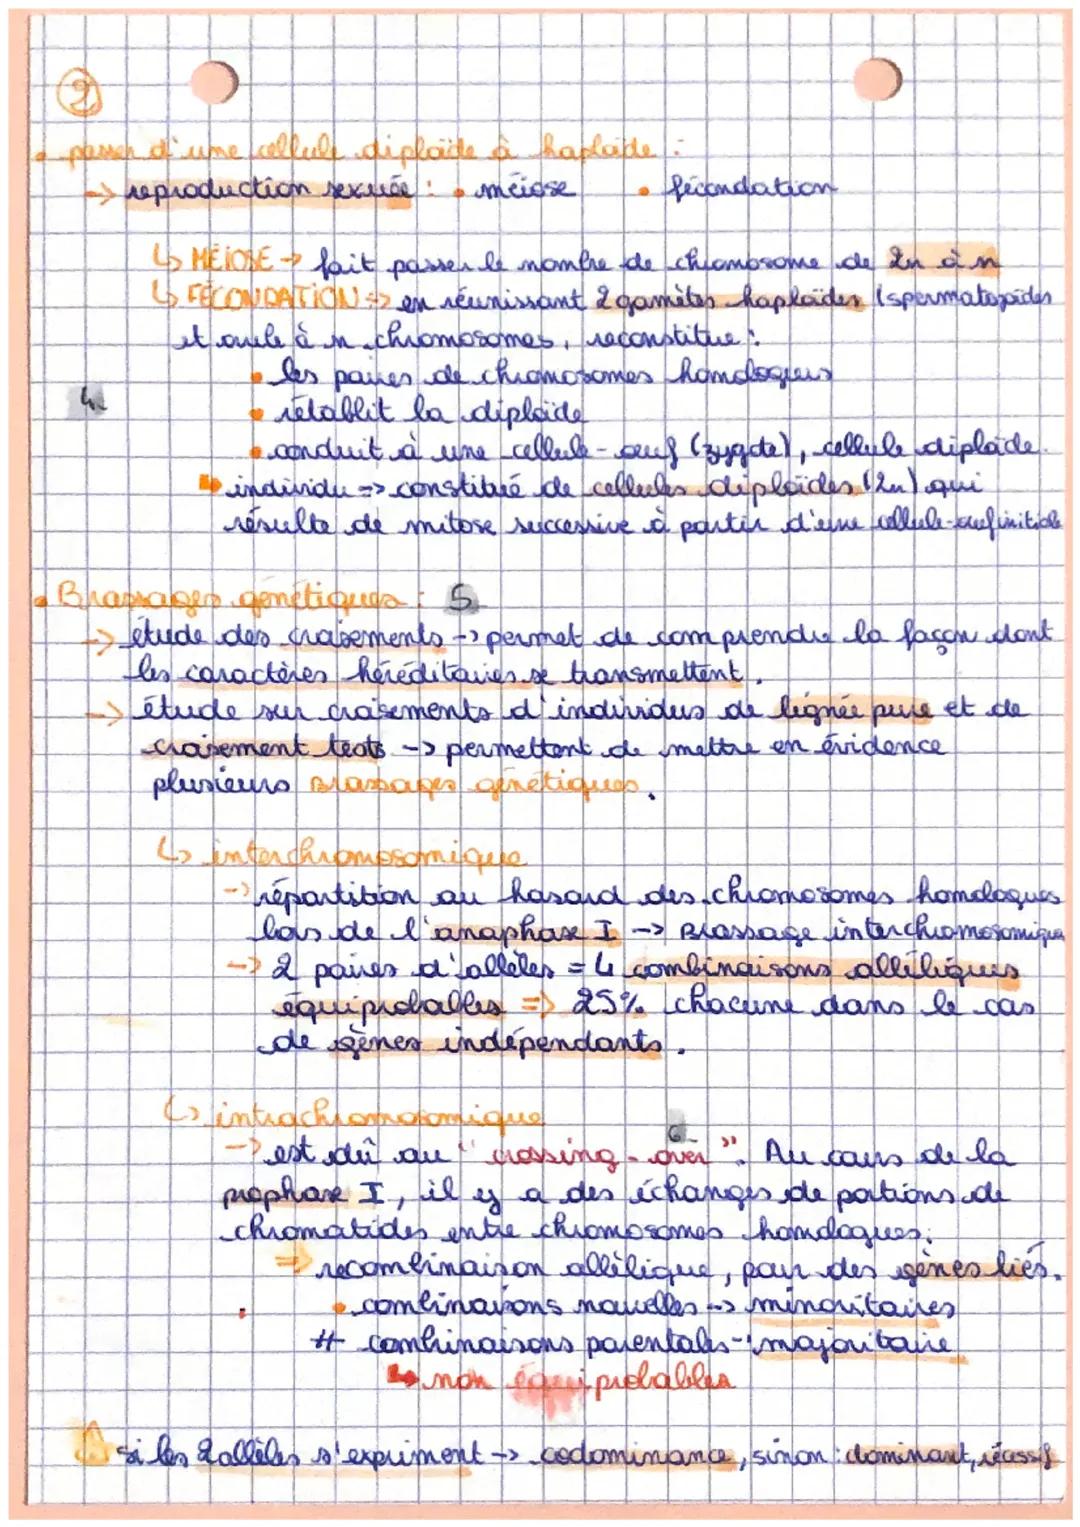 2
• passer d'une cellule diploïde à haploïde :
-> reproduction sexuée : • méiose • fécondation
↳ MÉIOSE -> fait passer le nombre de chromosome de 2n à n
↳ FÉCONDATION => en réunissant 2 gamètes haploïdes (spermatozoïdes
et ovule à n chromosomes, reconstitue :
• les paires de chromosomes homologues
4.
• rétablit la diploïde
• conduit à une cellule-œuf (zygote), cellule diploïde.
↳ individu => constitué de cellules diploïdes (2n) qui
résulte de mitose successive à partir d'une cellule-œuf initiale
• Brassages génétiques : 5
-> étude des croisements -> permet de comprendre la façon dont
les caractères héréditaires se transmettent.
-> étude sur croisements d'individus de lignée pure et de
croisement tests -> permettent de mettre en évidence
plusieurs Brassages génétiques.
↳ interchromosomique
-> répartition au hasard des chromosomes homologues
lors de l'anaphase I -> Brassage interchromosomique
-> 2 paires d'allèles = 4 combinaisons alléliques
équiprobables => 25% chacune dans le cas
de gènes indépendants.
↳ intrachromosomique
6
-> est dû au "crossing-over". Au cours de la
prophase I, il y a des échanges de portions de
chromatides entre chromosomes homologues.
=> recombinaison allélique, pour des gènes liés.
• combinaisons nouvelles -> minoritaires
# combinaisons parentales -> majoritaire
↳ non équiprobables
⚠ si les 2 allèles s'expriment -> codominance, sinon : dominant, récessif